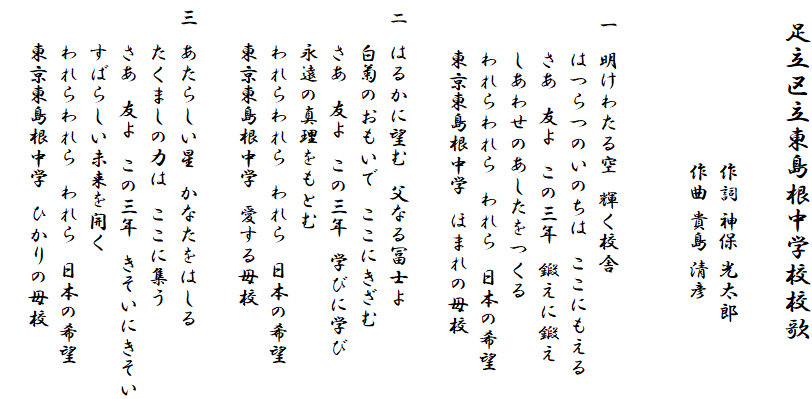 足立区立東島根中学校校歌
作詞 神保 光太郎
作曲 貴島 清彦
一 明けわたる空 輝く校舎
はつらつのいのちは ここにもえる
さあ 友よ この三年 鍛えに鍛え
しあわせのあしたをつくる
われらわれら われら 日本の希望
東京東島根中学 ほまれの母校
二 はるかに望む 父なる冨士よ
白菊のおもいで ここにきざむ
さあ 友よ この三年 学びに学び
永遠の真理をもとむ
われらわれら われら 日本の希望
東京東島根中学 愛する母校
三 あたらしい星 かなたをはしる
たくましの力は ここに集う
さあ 友よ この三年 きそいにきそい
すばらしい未来を開く
われらわれら われら 日本の希望
東京東島根中学 ひかりの母校